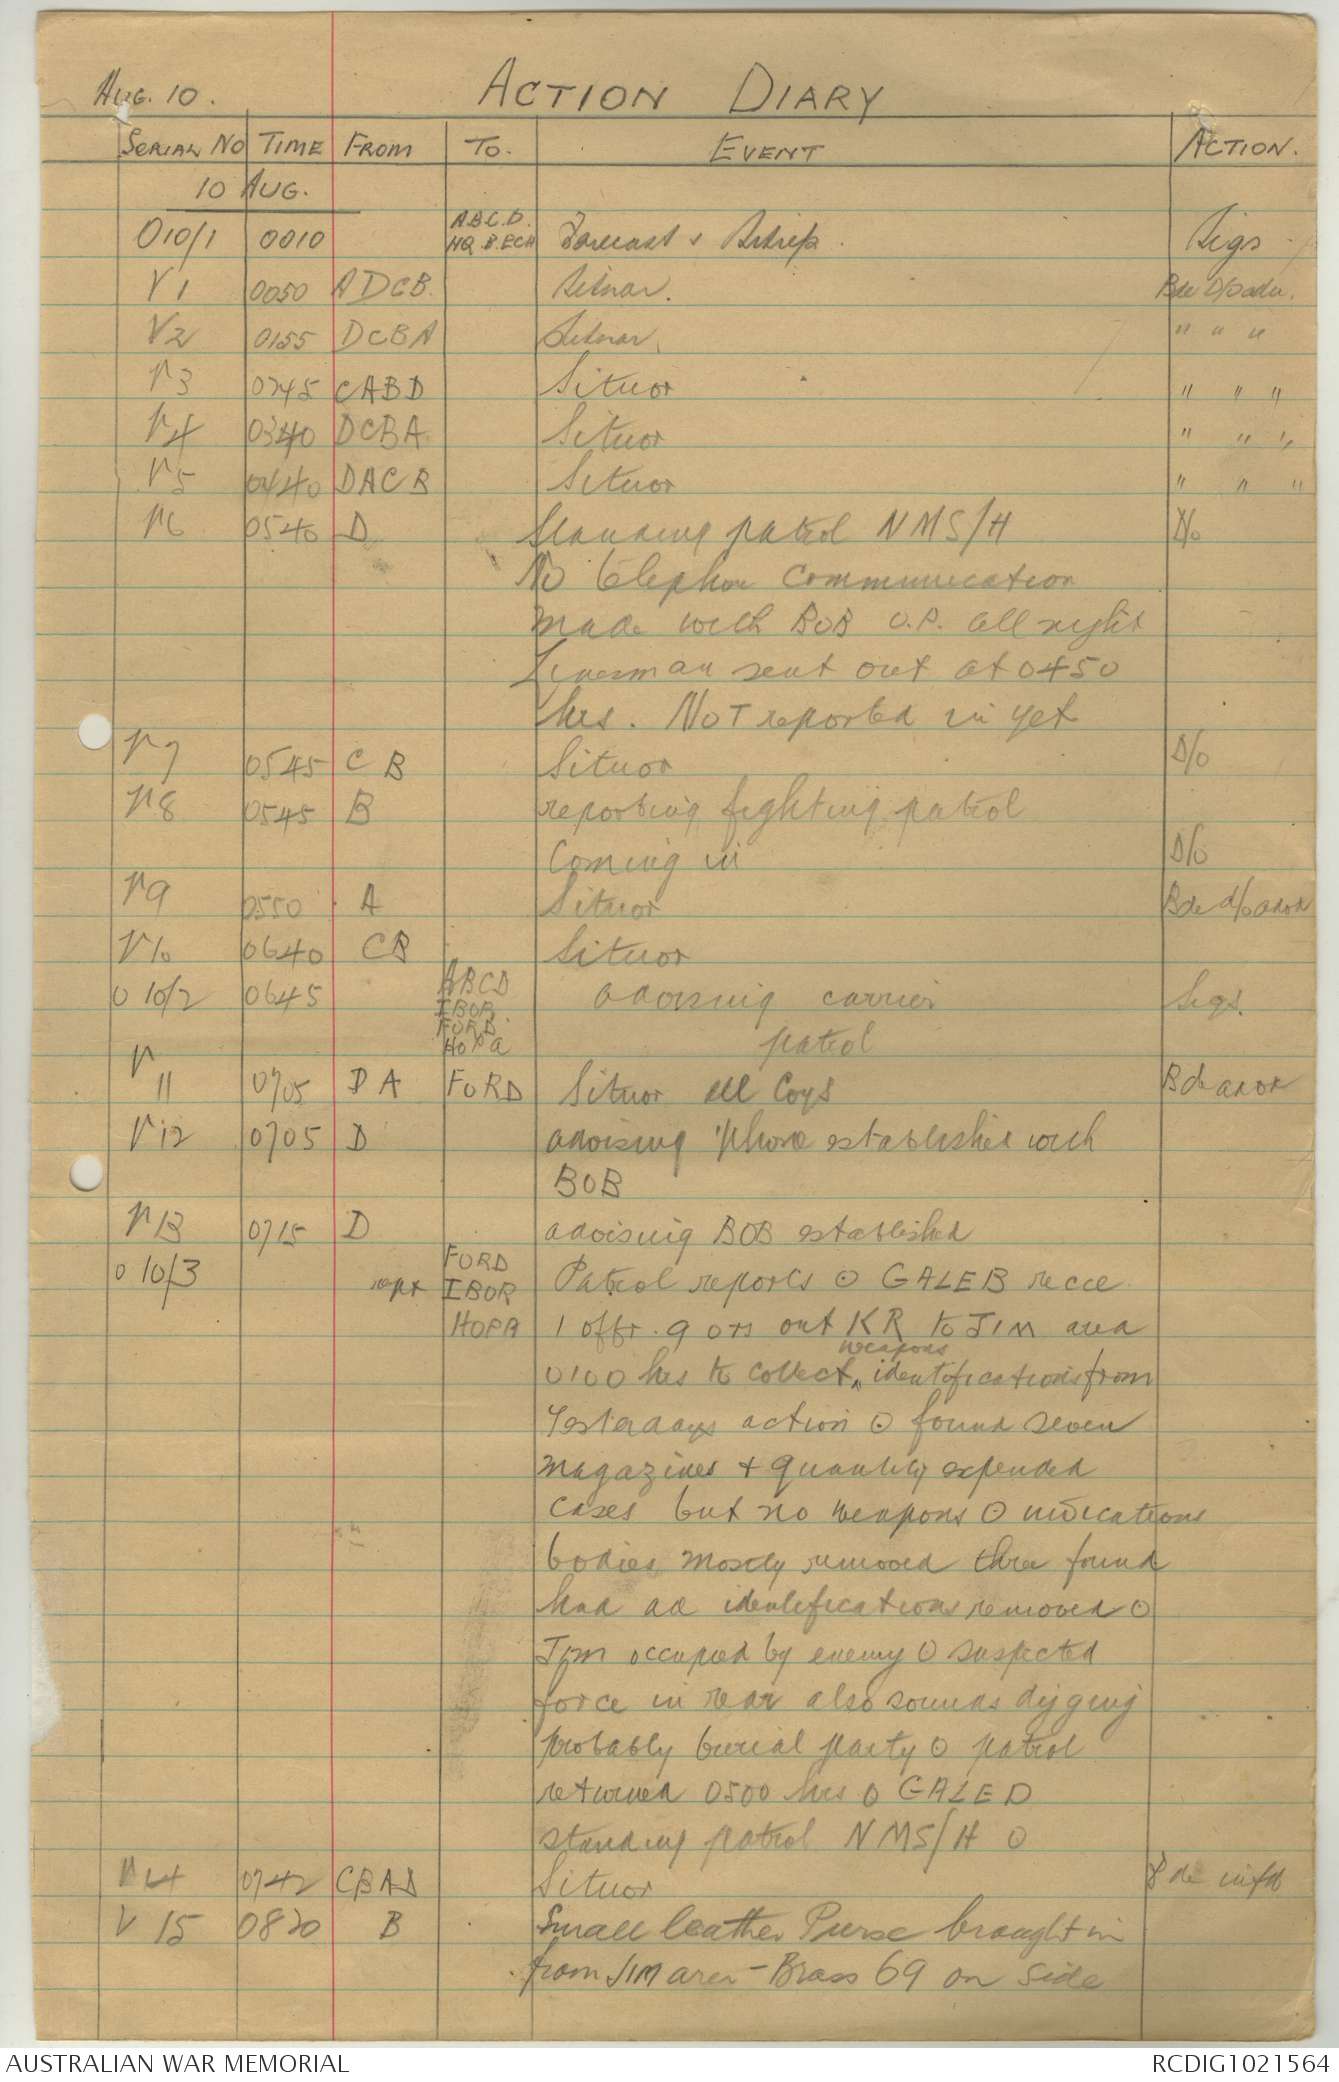 AUG. 10.
ACTION DIARY
SERIAL NO TIME FROM TO. EVENT ACTION.
10 AUG.
010/1 0010 A.B.C.D. HQ. B. ECH Forecast & Sitrep. Sigs
V1 0050 ADCB. Sitnor. Bde D/O adv.
V2 0155 DCBA Sitnor. " " "
V3 0245 CABD Situor " " "
V4 0340 DCBA Situor " " "
V5 0440 DACB Situor " " "
V6 0540 D Standing patrol NMS/H D/o
No telephone communication
made with BOB O.P. all night
Linesman sent out at 0450
hrs. Not reported in yet
V7 0545 CB Situor D/o
V8 0545 B reporting fighting patrol
coming in D/o
V9 0550 A Situor Bde d/o
V10 0640 CB Situor
O 10/2 0645 ABCD advising carrier Sigs.
IBOR
FORD
HOPA patrol
V11 0705 DA FORD Situor all Coys Bde
V12 0705 D advising 'phone established with
BOB
V13 0715 D advising BOB established
O 10/3 FORD
rept IBOR Patrol reports ⊙ GALEB recce
HOPA 1 offr. 9 ors out KR to JIM area
weapons
0100 hrs to collect ^ identifications from
Yesterdays action ⊙ found seven
magazines + quantity expended
cases but no weapons ⊙ indications
bodies mostly removed three found
had all identifications removed ⊙
Jim occupied by enemy ⊙ suspected
force in rear also sounds digging
probably burial party ⊙ patrol
returned 0500 hrs ⊙ GALED
standing patrol NMS/H ⊙
V14 0742 CBAD Situor Bde
V15 0820 B Small leather Purse brought in
from JIM area - Brass 69 on side
AUSTRALIAN WAR MEMORIAL RCDIG1021564